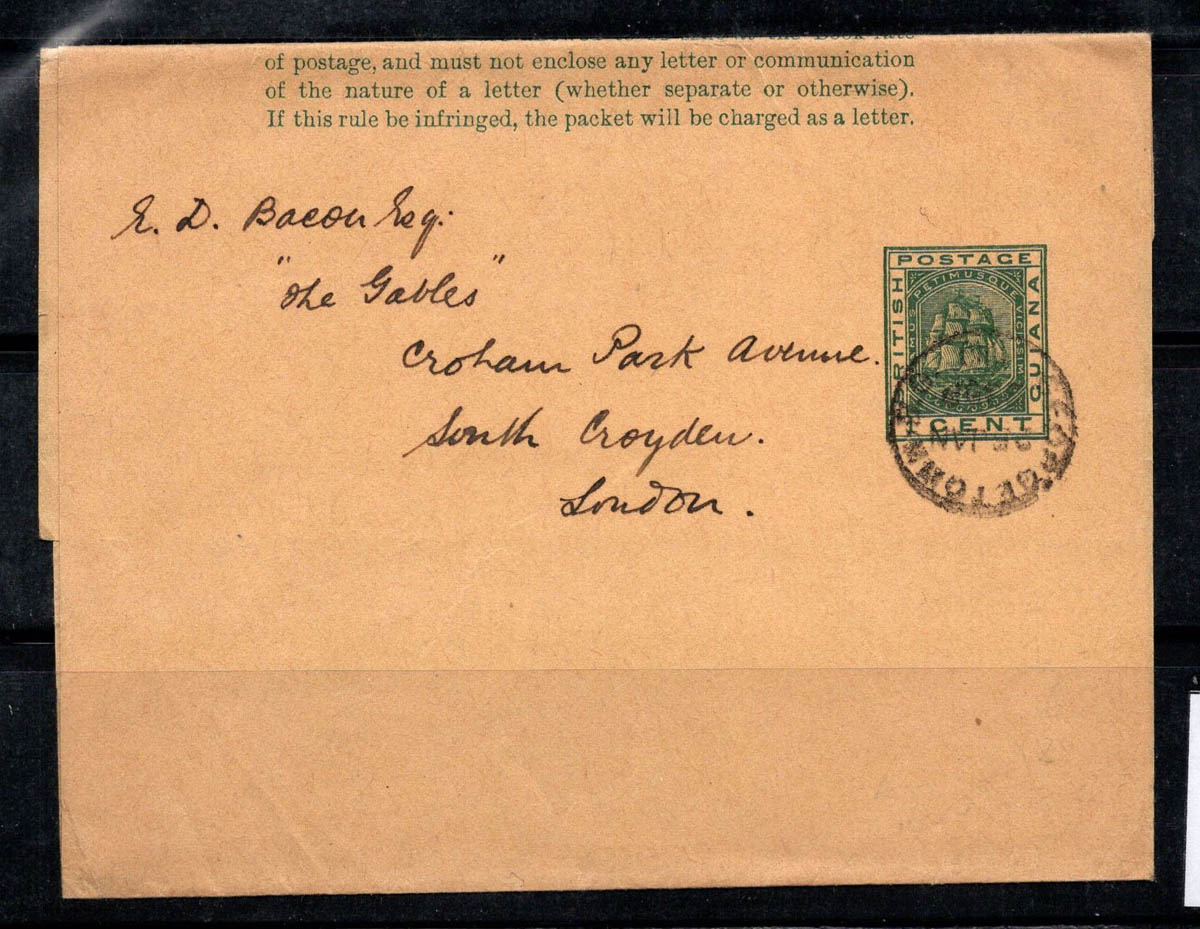 the Book rate
of postage, and must not enclose any letter or communication
of the nature of a letter (whether separate or otherwise).
If this rule be infringed, the packet will be charged as a letter.
E. D. Bacon Esq:
"The Gables"
Croham Park Avenue.
South Croyden.
London.
POSTAGE
BRITISH
GUIANA
PETIMUSQUE VICISSIM
CENT
GEORGETOWN